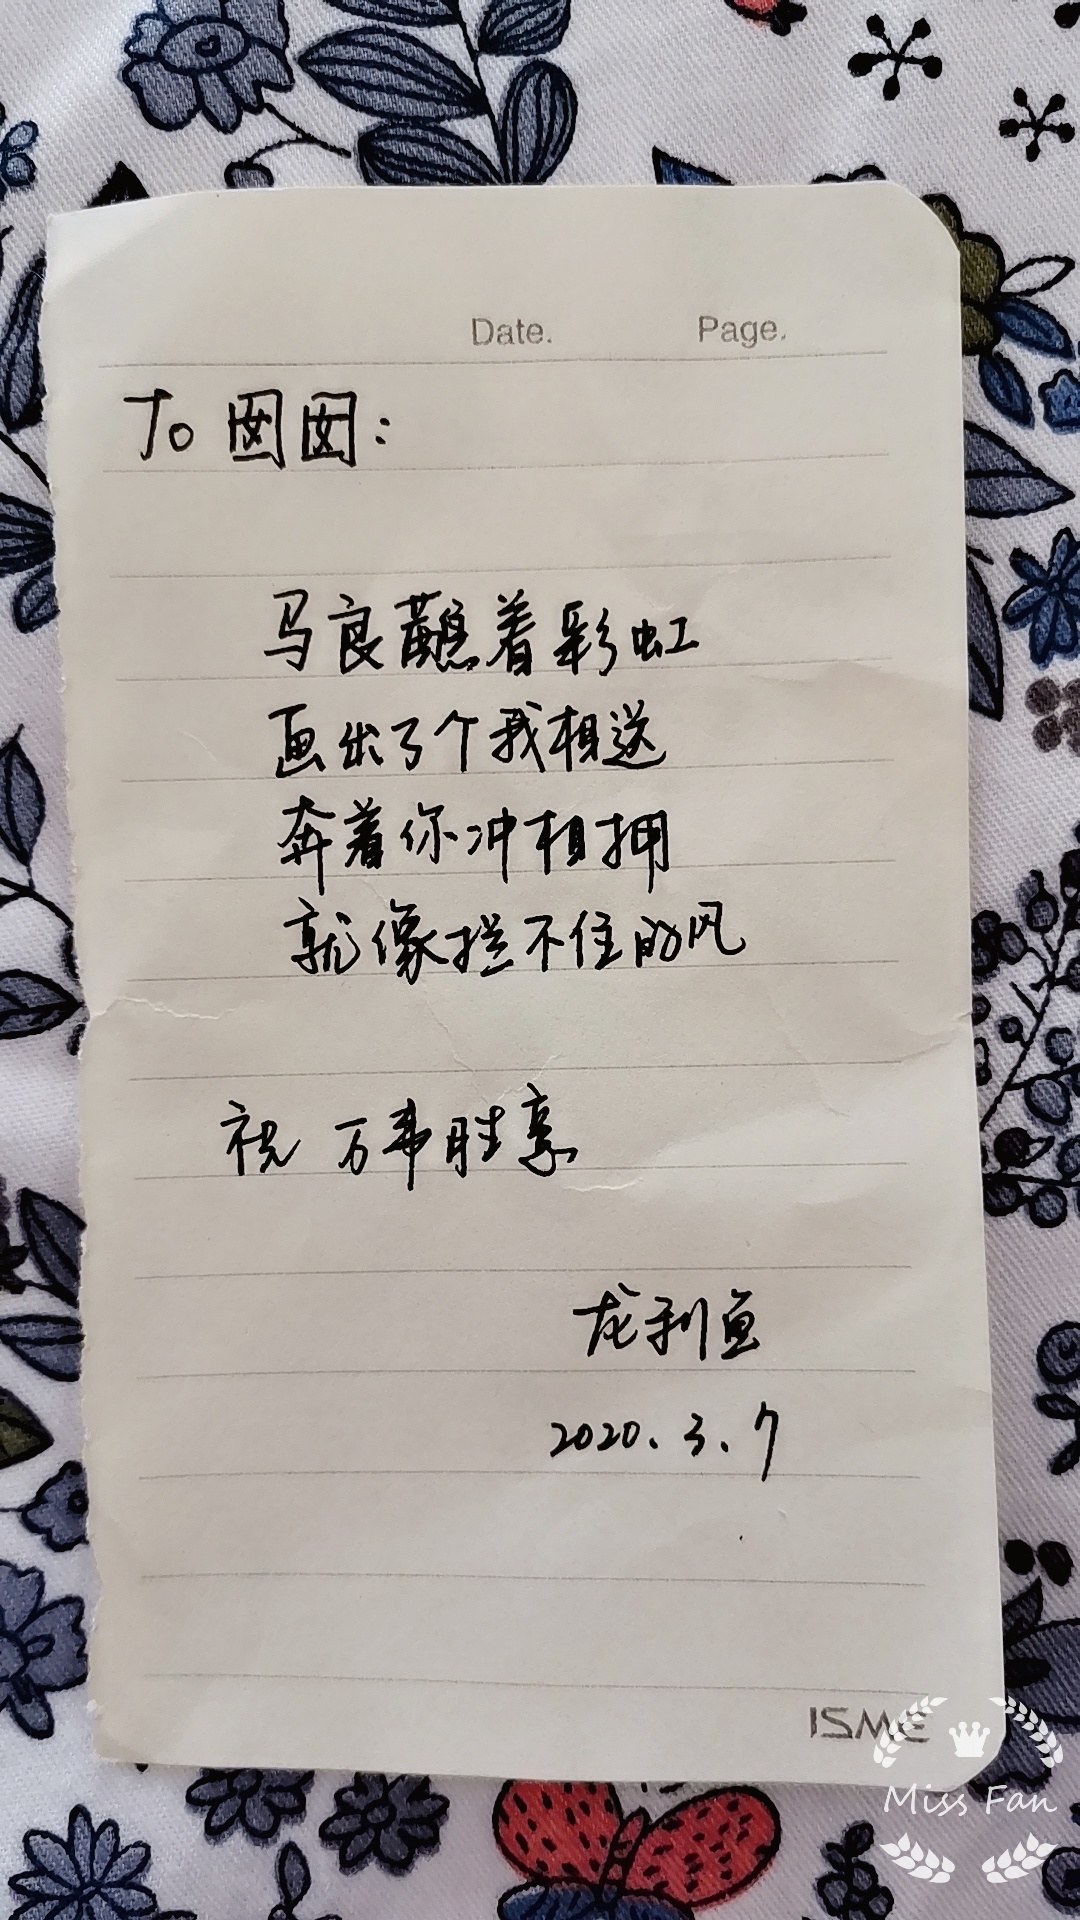 Date. Page.
To 囡囡:
马良蘸着彩虹
画出了个我相送
奔着你冲相拥
就像拦不住的风
祝 万事胜意
龙利鱼
2020.3.7
ISME
Miss Fan